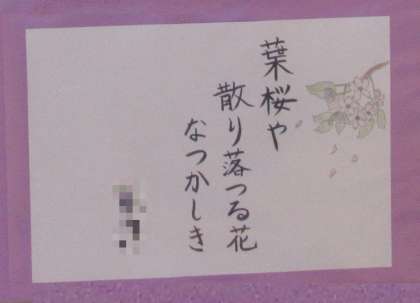 葉桜や
散り落つる花
なつかしき